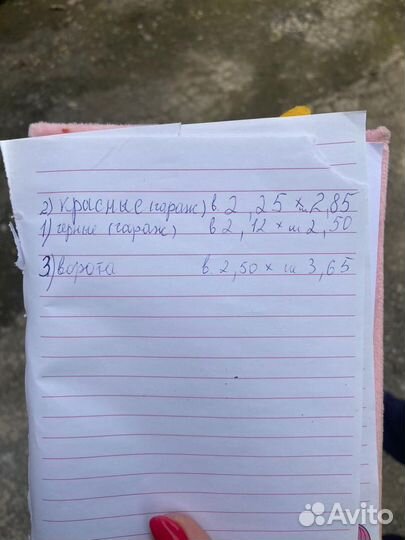 2) Красные (гараж) в. 2,25 х ш 2,85
1) черные (гараж) в 2,12 х ш 2,50
3) ворота в. 2,50 х ш 3,65
Avito